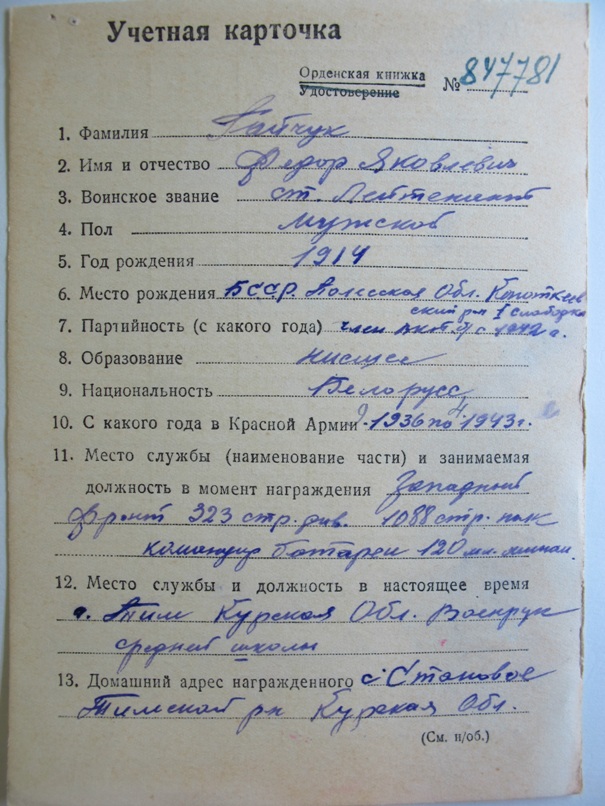 Учетная карточка
Орденская книжка
Удостоверение
№ 847781
1. Фамилия
2. Имя и отчество Федор Яковлевич
3. Воинское звание ст. Лейтенант
4. Пол мужской
5. Год рождения 1914
6. Место рождения БССР. Полесская Обл. Копаткев
ский р-н Слободка
7. Партийность (с какого года) член с 1942 г.
8. Образование низшее
9. Национальность Белорусс
10. С какого года в Красной Армии 1936 по 1943 г.
11. Место службы (наименование части) и занимаемая
должность в момент награждения Западный
Фронт 323 стр. див. 1088 стр. полк
командир батареи 120 мл.
12. Место службы и должность в настоящее время
Тим Курская Обл. Военрук
средней школы
13. Домашний адрес награжденного с. Становое
Тимской рн Курская Обл.
(См. н/об.)